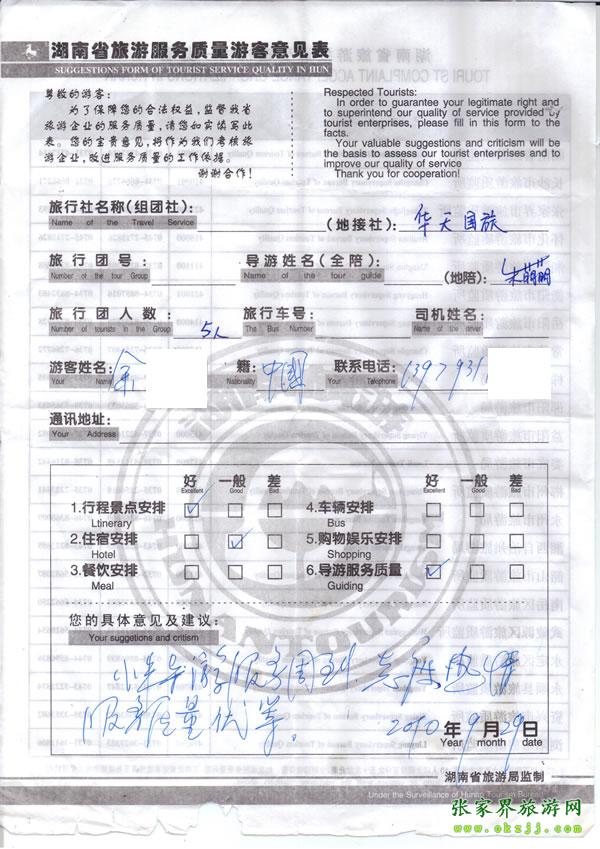 湖南省旅游服务质量游客意见表
SUGGESTIONS FORM OF TOURIST SERVICE QUALITY IN HUN
尊敬的游客:
为了保障您的合法权益,监督我省
旅游企业的服务质量,请您如实填写此
表。您的宝贵意见,将作为我们考核旅
游企业,改进服务质量的工作依据。
谢谢合作!
Respected Tourists:
In order to guarantee your legitimate right and
to superintend our quality of service provided by
tourist enterprises, please fill in this form to the
facts.
Your valuable suggestions and criticism will be
the basis to assess our tourist enterprises and to
improve our quality of service
Thank you for cooperation!
旅行社名称(组团社): (地接社): 华天国旅
Name of the Travel Service
旅行团号: 导游姓名(全陪) (地陪) 朱萌萌
Number of the tour Group Name of the tour guide
旅行团人数: 5人 旅行车号: 司机姓名:
Number of tourists in the Group The Bus Number Name of the driver
游客姓名: 余 籍: 中国 联系电话: 1397931
Your Name Nationality Your Telephone
通讯地址:
Your Address
好 一般 差 好 一般 差
Excellent Good Bad Excellent Good Bad
1.行程景点安排 ✓ 4.车辆安排
Ltinerary Bus
2.住宿安排 ✓ 5.购物娱乐安排
Hotel Shopping
3.餐饮安排 6.导游服务质量 ✓
Meal Guiding
您的具体意见及建议:
Your suggetions and critism
小朱导游服务周到
服务质量优等。
2010 年 9 月 29 日
Year month date
湖南省旅游局监制
Under the Surveillance of Hunan Tourism Bureau
张家界旅游网
www.okzjj.com